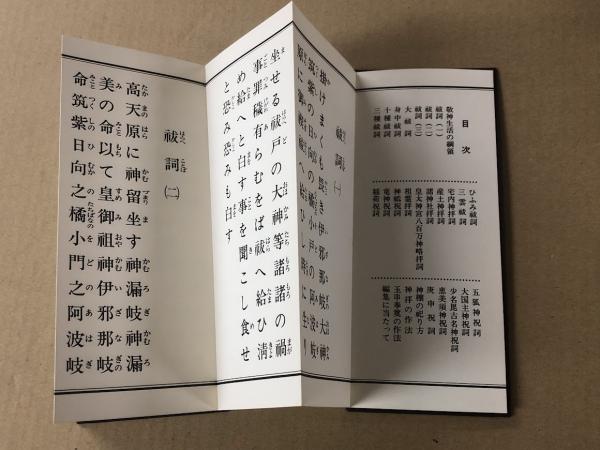 目次
敬神生活の綱領
祓詞(一)
祓詞(二)
祓詞(三)
大祓詞
身中祓詞
十種祓詞
三種祓詞
ひふみ祓詞
三雲祓詞
宅内神拝詞
産土神拝詞
諸神社拝詞
皇大神宮八百万神略拝詞
祖霊拝詞
神嶋祝詞
竜神祝詞
稲荷祝詞
五狐神祝詞
大国主神祝詞
少名毘古名神祝詞
恵美須神祝詞
庚申祝詞
神棚の祀り方
神拝の作法
玉串奉奠の作法
編集に当たって
祓詞(一)
掛けまくも畏き伊邪那岐大神
筑紫の日向の橘の小戸の阿波岐
原に
坐せる祓戸の大神等諸諸の禍
事罪穢有らむをば祓へ給ひ清
め給へと白す事を聞こし食せ
と恐み恐みも白す
祓詞(二)
高天原に神留坐す神漏岐神漏
美の命以て皇御祖神伊邪那岐
命筑紫日向之橘小門之阿波岐